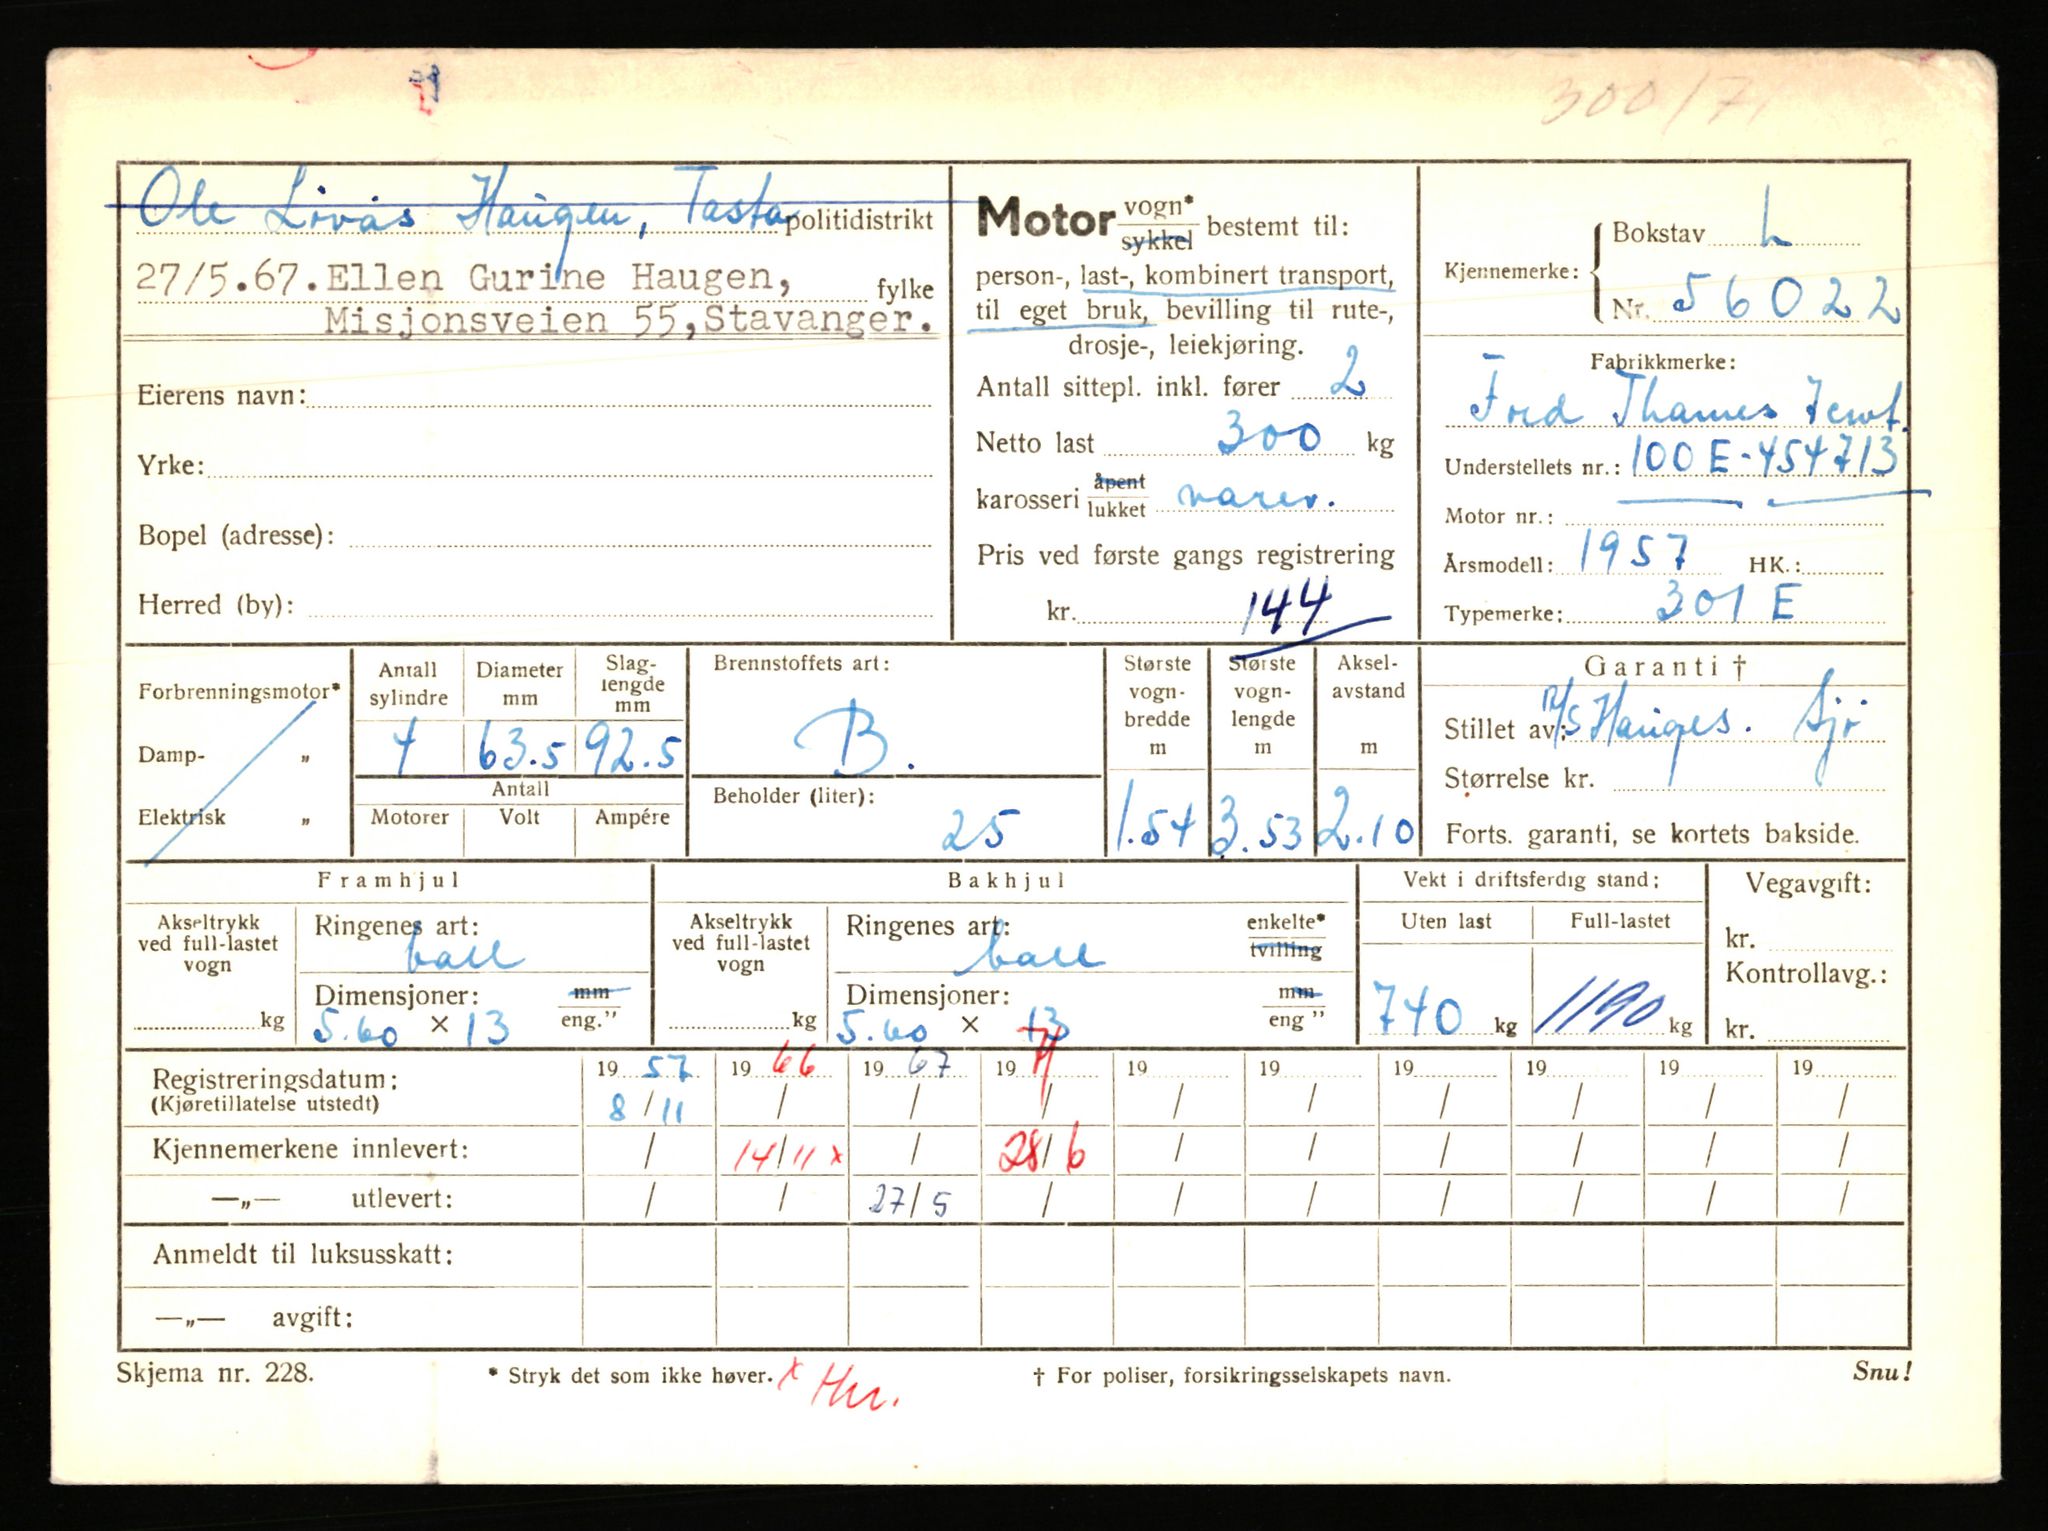 300/71
Ole Livås Haugen, Tasta politidistrikt
27/5.67. Ellen Gurine Haugen, fylke
Misjonsveien 55, Stavanger.
Eierens navn:
Yrke:
Bopel (adresse):
Herred (by):
Motor vogn* sykkel bestemt til:
person-, last-, kombinert transport,
til eget bruk, bevilling til rute-,
drosje-, leiekjøring.
Antall sittepl. inkl. fører 2
Netto last 300 kg
karosseri åpent lukket varev.
Pris ved første gangs registrering
kr. 144
Kjennemerke: Bokstav L
Nr. 56022
Fabrikkmerke:
Ford Thames
Understellets nr.: 100 E-454713
Motor nr.:
Årsmodell: 1957 HK.:
Typemerke: 301 E
Forbrenningsmotor*
Damp- „
Elektrisk „
Antall sylindre 4
Diameter mm 63.5
Slaglengde mm 92.5
Antall
Motorer Volt Ampére
Brennstoffets art:
B.
Beholder (liter):
25
Største vognbredde m 1.54
Største vognlengde m 3.53
Akselavstand m 2.10
Garanti †
Stillet av: Hauges. Sjø
Størrelse kr.
Forts. garanti, se kortets bakside.
Framhjul
Akseltrykk ved full-lastet vogn kg
Ringenes art:
ball
Dimensjoner: mm eng.”
5.60 × 13
Bakhjul
Akseltrykk ved full-lastet vogn kg
Ringenes art: enkelte* tvilling
ball
Dimensjoner: mm eng ”
5.60 × 13
Vekt i driftsferdig stand:
Uten last Full-lastet
740 kg 1190 kg
Vegavgift:
kr.
Kontrollavg.:
kr.
Registreringsdatum: 1957 1966 1967 1971 19 19 19 19 19 19
(Kjøretillatelse utstedt) 8/11 / / / / / / / / /
Kjennemerkene innlevert: / 14/11 x / 28/6 / / / / / /
—„— utlevert: / / 27/5 / / / / / / /
Anmeldt til luksusskatt:
—„— avgift:
Skjema nr. 228. * Stryk det som ikke høver. x † For poliser, forsikringsselskapets navn. Snu!